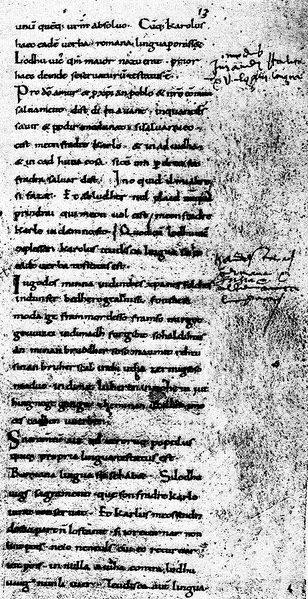 13
unū quēq; urm absoluo. Cūq; karolus
haec eadē uerba romana lingua porasset
Lodhuuic̄ qm̄ maior natu erat. prior
haec deinde se seruaturū testatus ē:
Pro dō amur et p xp̄ian poblo et nr̄o commun
saluament. dist di in auant. inquantds̄
sauir et podir medunat. si saluaraieo.
cist meonfradre karlo. et in adiudha
et in cad huna cosa. sicū om p dreit son
fradra saluar dist. Ino quid il mialtre
si fazet. Et abludher nul plaid nūquā
prindrai qui meon uol cist meonfradre
karle in damno sit. Quodcū lodhuuic̄
explesset. karolus teudisca lingua sic hec
eadē uerba testatus est.
Ingodes minna indinthes xp̄anes folches
indunser bedhero gealtnissi. fonthese
mo dage frammordes so fram so mir got
geuuizci indi madh furgibit so haldih tes
an minan bruodher soso man mit rehtu
sinan bruher scal inthi utha zermigsoso
maduo. indimit luheren in noheiniut
hing nege gango. zheminan uuillon imo
ce scadhen uuerhen.
Sacramentū aūt qd̄ utrorumq; populus
quiq; propria lingua testatus est
Romana lingua sic se habet. Silodhu
uigs sagrament que son fradre karlo
iurat conseruat. Et karlus meossendra
desuo partn̄ lostanit. si ioreturnar non
lint pois. neio neneuls cuieo returnar
int pois. in nulla aiudha contra lodhu
uuig nunli iuer. Teudisca aūt lingua.